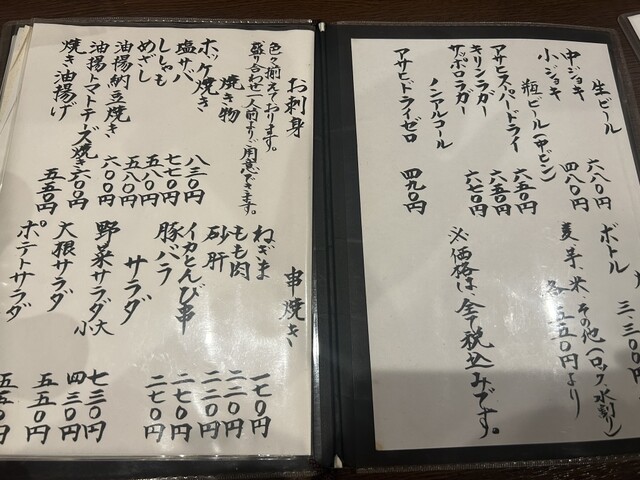 生ビール
中ジョキ 六八〇円
小ジョキ 四八〇円
瓶ビール(中ビン)
アサヒスーパードライ 六五〇円
キリンラガー 六五〇円
サッポロラガー 六七〇円
ノンアルコール
アサヒドライゼロ 四九〇円
三.三〇〇円
ボトル
麦、芋、米、その他(ロック、水割り)
各五五〇円より
※価格は全て税込みです。
お刺身
色々揃えております。
盛り合わせ一人前よりご用意できます。
焼き物
ホッケ焼き 八三〇円
塩サバ 七七〇円
ししゃも 五八〇円
めざし 五八〇円
油揚納豆焼き 六〇〇円
油揚トマトチーズ焼き 六〇〇円
焼き油揚げ 五五〇円
串焼き
ねぎま 一七〇円
もも肉 二二〇円
砂肝 二二〇円
イカとんび串 二七〇円
豚バラ 二七〇円
サラダ
野菜サラダ大 七三〇円
小 四三〇円
大根サラダ 五五〇円
ポテトサラダ 五五〇円